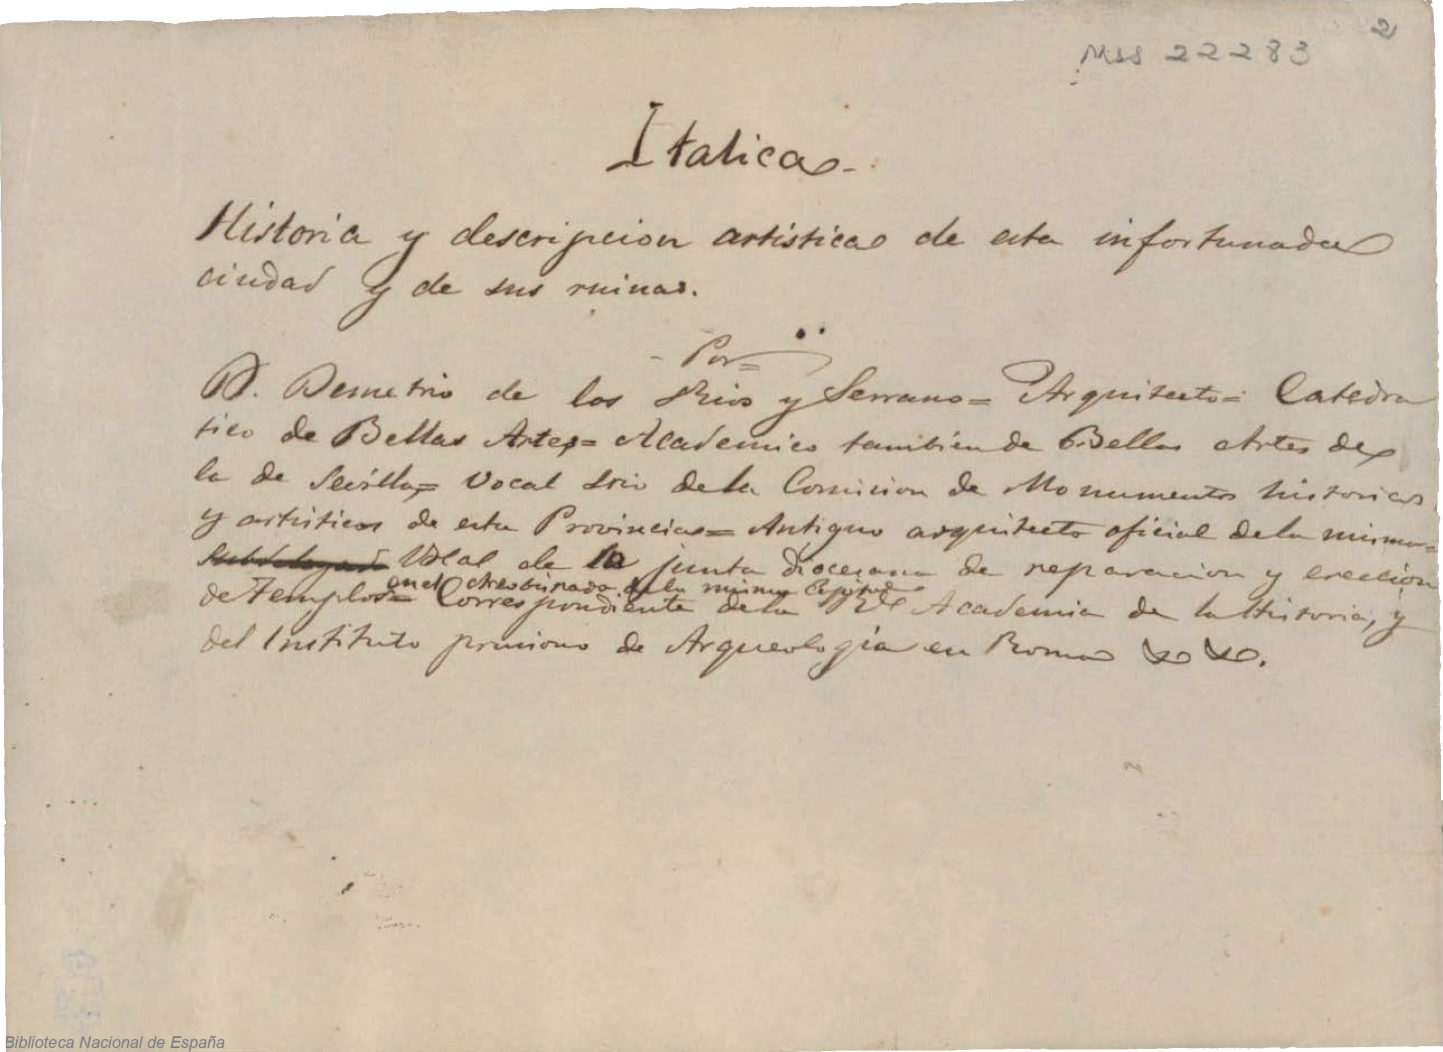 2
Mss 22283
Italica.
Historia y descripcion artistica de esta infortunada
ciudad y de sus ruinas.
Por=
D. Demetrio de los Rios y Serrano= Arquitecto= Catedra
tico de Bellas Artes= Academico tambien de Bellas Artes de
la de Sevilla= Vocal Srio de la Comision de Monumentos historicos
y artisticos de esta Provincia= Antiguo arquitecto oficial de la misma=
Vocal de la junta diocesana de reparacion y ereccion
en el Arzobispado de la misma Capital
de Templos= Correspondiente de la Rl Academia de la Historia, y
del Instituto prusiano de Arqueologia en Roma
Biblioteca Nacional de España